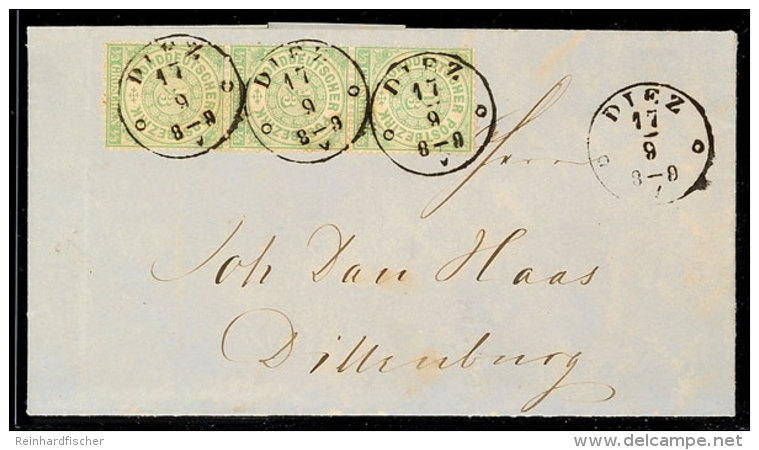 DIEZ
17
9
8-9
V
DIEZ
17
9
8-9
V
DIEZ
17
9
8-9
V
NORDDEUTSCHER POSTBEZIRK
DIEZ
17
9
8-9
Herrn
Joh Dan Haas
Dillenburg
Reinhardfischer
delcampe.net